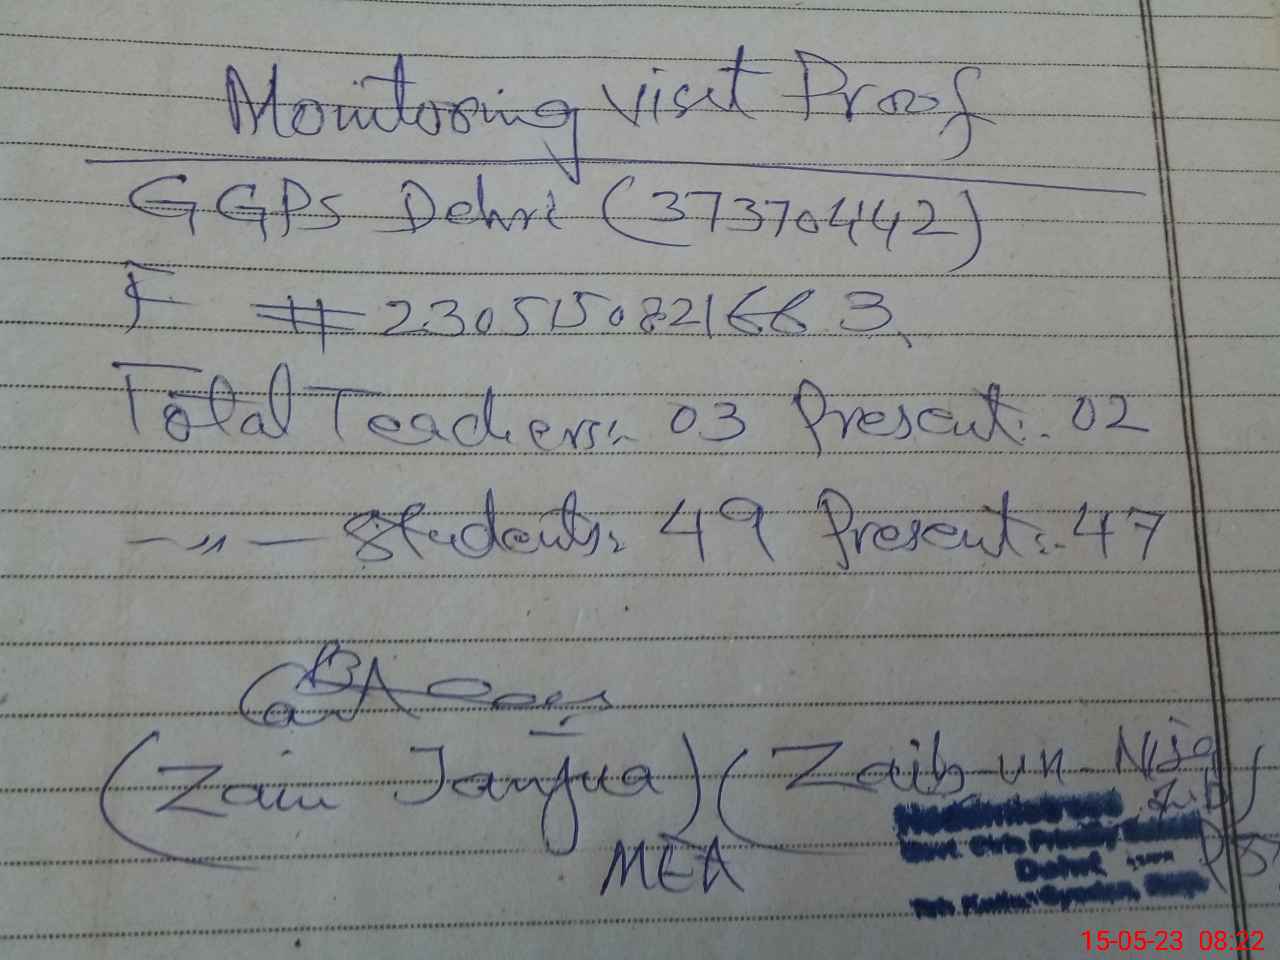 Monitoring visit Proof
GGPS Dehri (37370442)
F # 2305150821663
Total Teachers:- 03 Present:- 02
—〃— Students:- 49 Present:- 47
(Zain Janjua) (Zaib-un-Nisa
MEA
Headmistress
Govt. Girls Primary School
Dehri
15-05-23 08:22